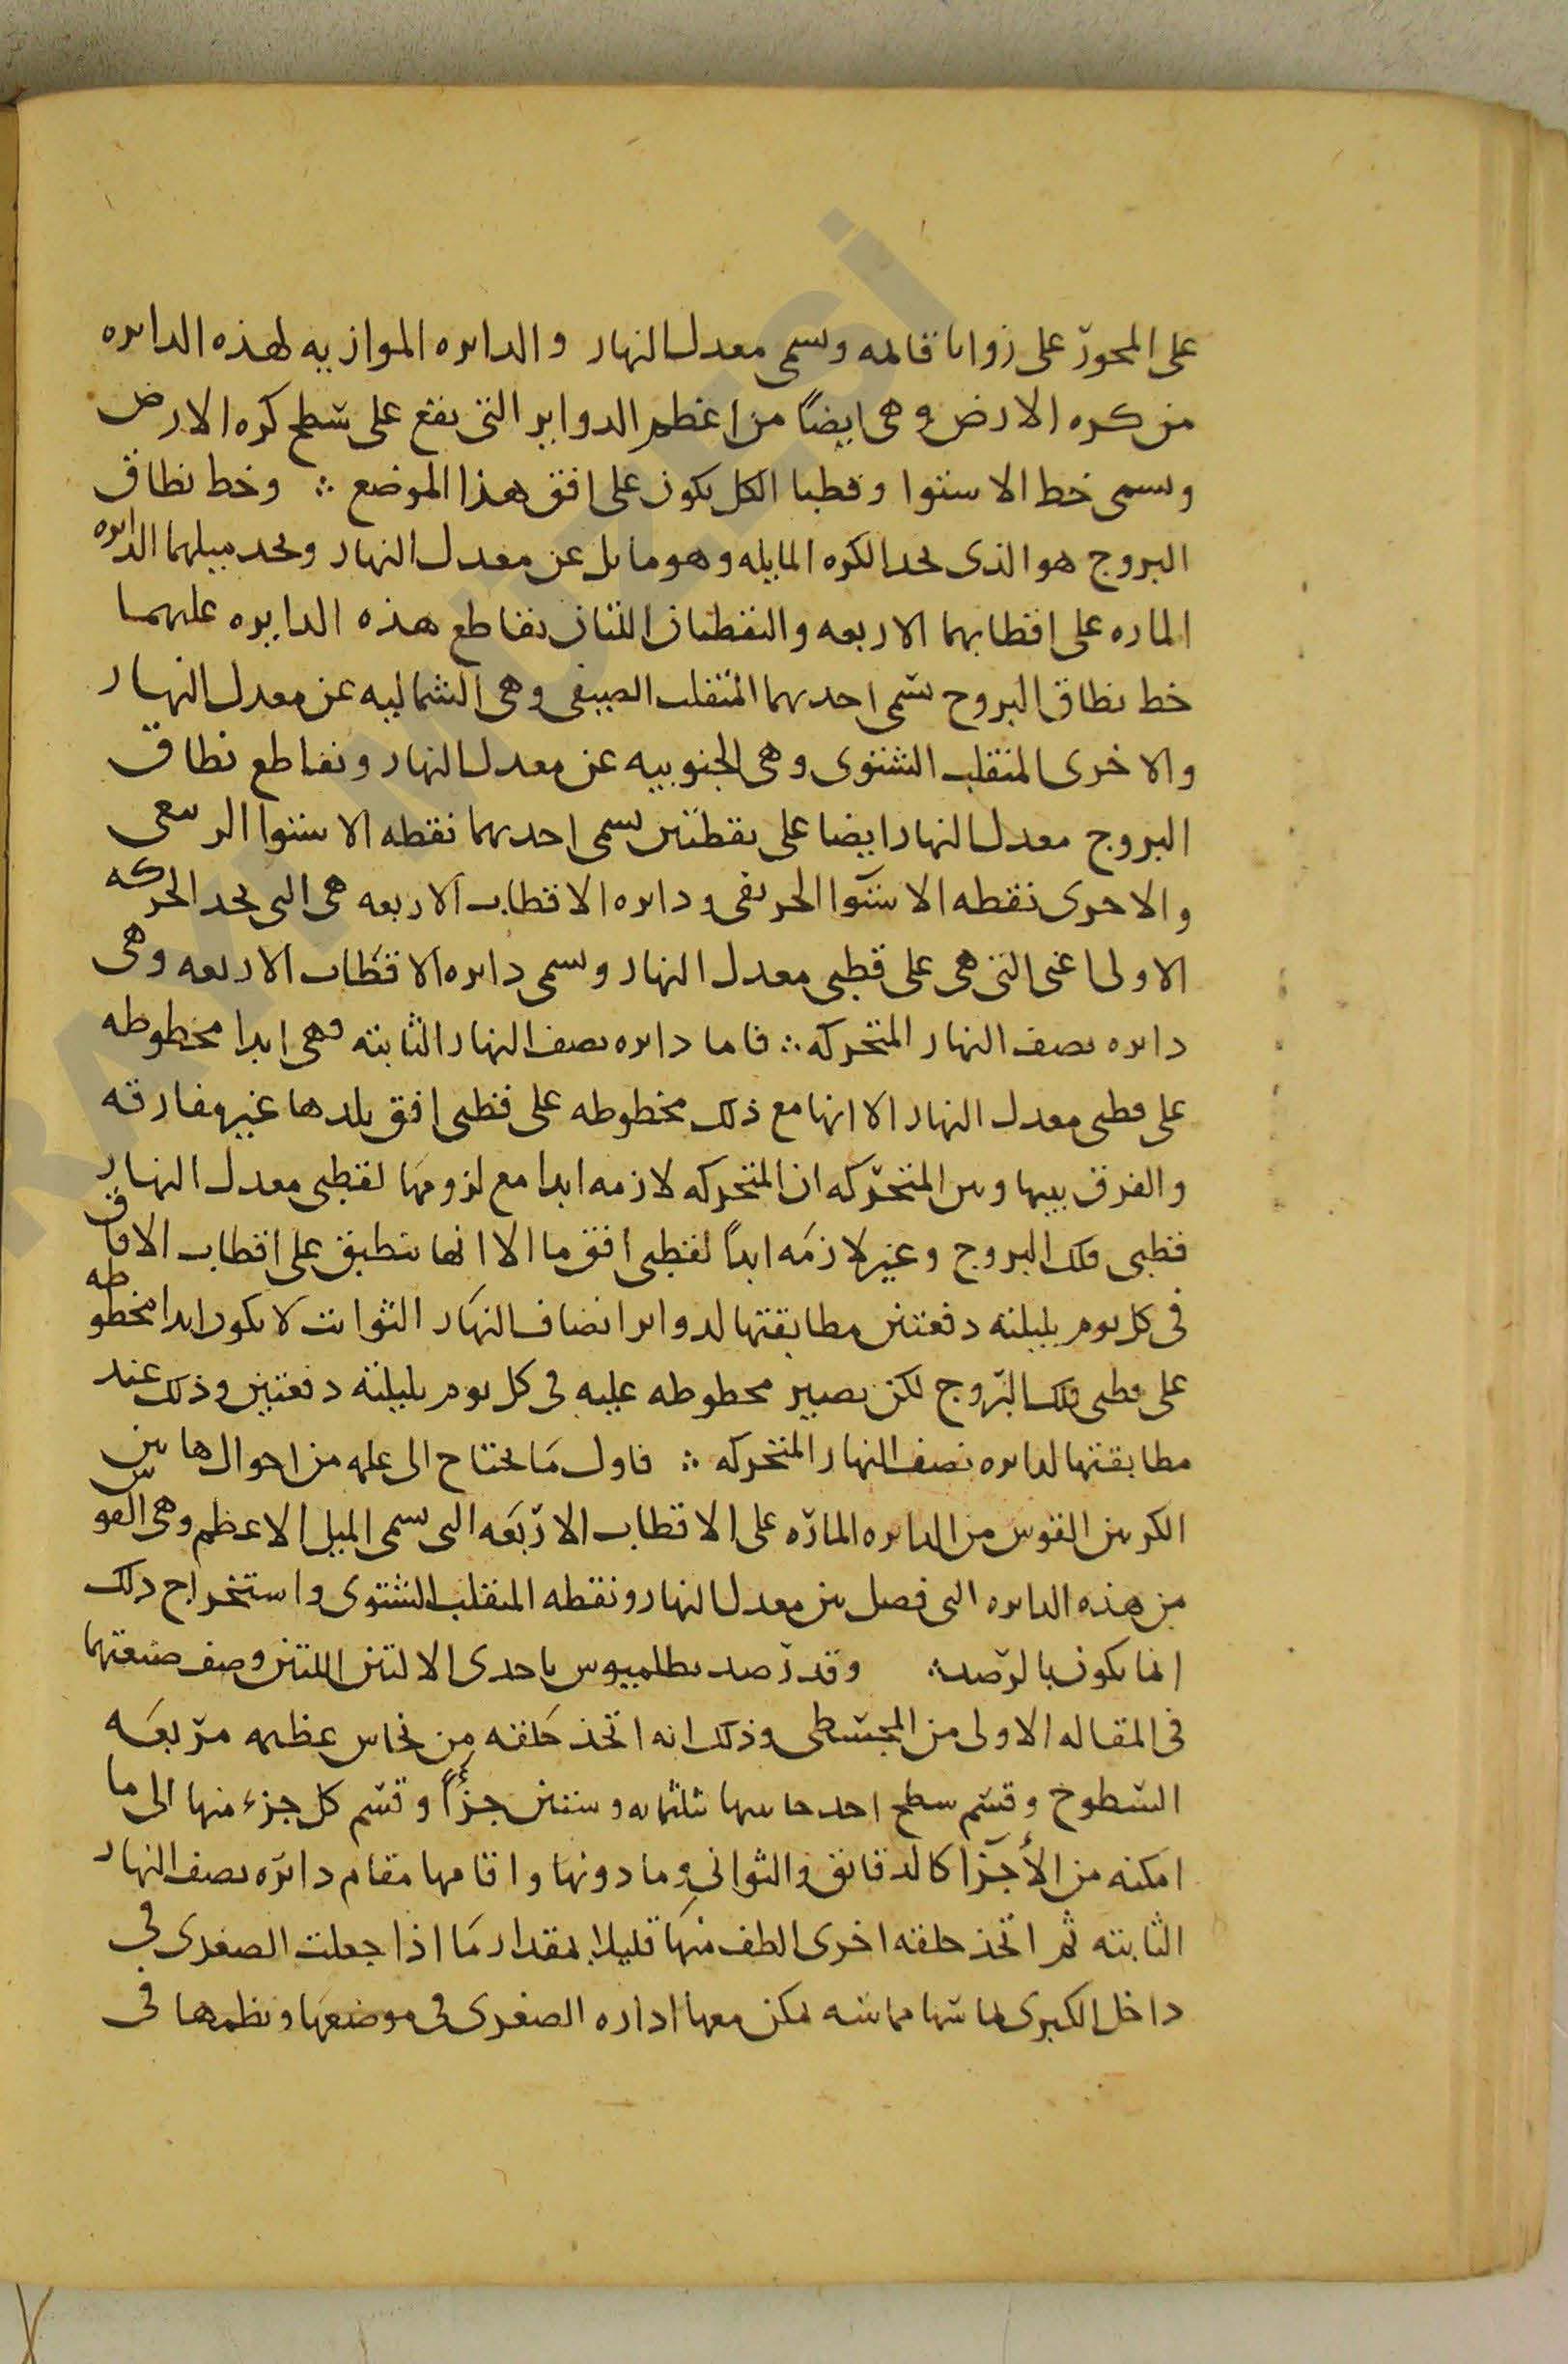 على المحور على زوايا قائمه ويسمى معدل النهار والدايره الموازيه لهذه الدايره
من كره الارض وهى ايضاً من اعظم الدواير التى يقع على سطح كره الارض
ويسمى خط الاستوا وقطبا الكل يكون على افق هذا الموضع ؞ وخط نطاق
البروج هو الذى يحد الكره المايله وهو مايل عن معدل النهار ويحد ميلهما الدايره
الماره على اقطابهما الاربعه والنقطتان اللتان يقاطع هذه الدايره عليهما
خط نطاق البروج يسمى احديهما المنقلب الصيفى وهى الشماليه عن معدل النهار
والاخرى المنقلب الشتوى وهى الجنوبيه عن معدل النهار ويقاطع نطاق
البروج معدل النهار ايضا على نقطتين يسمى احديهما نقطه الاستوا الربيعى
والاخرى نقطه الاستوا الخريفى ودايره الاقطاب الاربعه هى التى يحد الحركه
الاولى اعنى التى هى على قطبى معدل النهار ويسمى دايره الاقطاب الاربعه وهى
دايره نصف النهار المتحركه ؞ فاما دايره نصف النهار الثابته فهى ابدا مخطوطه
على قطبى معدل النهار الا انها مع ذلك مخطوطه على قطبى افق بلدها غير مفارقه
والفرق بينها وبين المتحركه ان المتحركه لازمه ابدا مع لزومها لقطبى معدل النهار
قطبى فلك البروج وغير لازمه ابداً لقطبى افق ما الا انها ينطبق على اقطاب الافاق
فى كل يوم بليلته دفعتين مطابقتها لدواير انصاف النهار الثوابت لا يكون ابدا مخطوطه
على قطبى فلك البروج لكن يصير مخطوطه عليه فى كل يوم بليلته دفعتين وذلك عند
مطابقتها لدايره نصف النهار المتحركه ؞ فاول ما يحتاج الى علمه من احوال هاتين
الكرتين القوس من الدايره الماره على الاقطاب الاربعه التى يسمى الميل الاعظم وهى القوس
من هذه الدايره التى فصل بين معدل النهار ونقطه المنقلب الشتوى واستخراج ذلك
انما يكون بالرصد ؞ وقد رصد بطلميوس باحدى الالتين اللتين وصف صنعتهما
فى المقاله الاولى من المجسطى وذلك انه اتخذ حلقه من نحاس عظيمه مربعه
السطوح وقسم سطح احد جانبيها ثلثمايه وستين جزءًا وقسم كل جزء منها الى ما
امكنه من الأجزا كالدقائق والثوانى وما دونها واقامها مقام دائره نصف النهار
الثابته ثم اتخذ حلقه اخرى الطف منها قليلا بمقدار ما اذا جعلت الصغرى فى
داخل الكبرى ماستها مماسه يمكن معها اداره الصغرى فى موضعها ونظمها فى